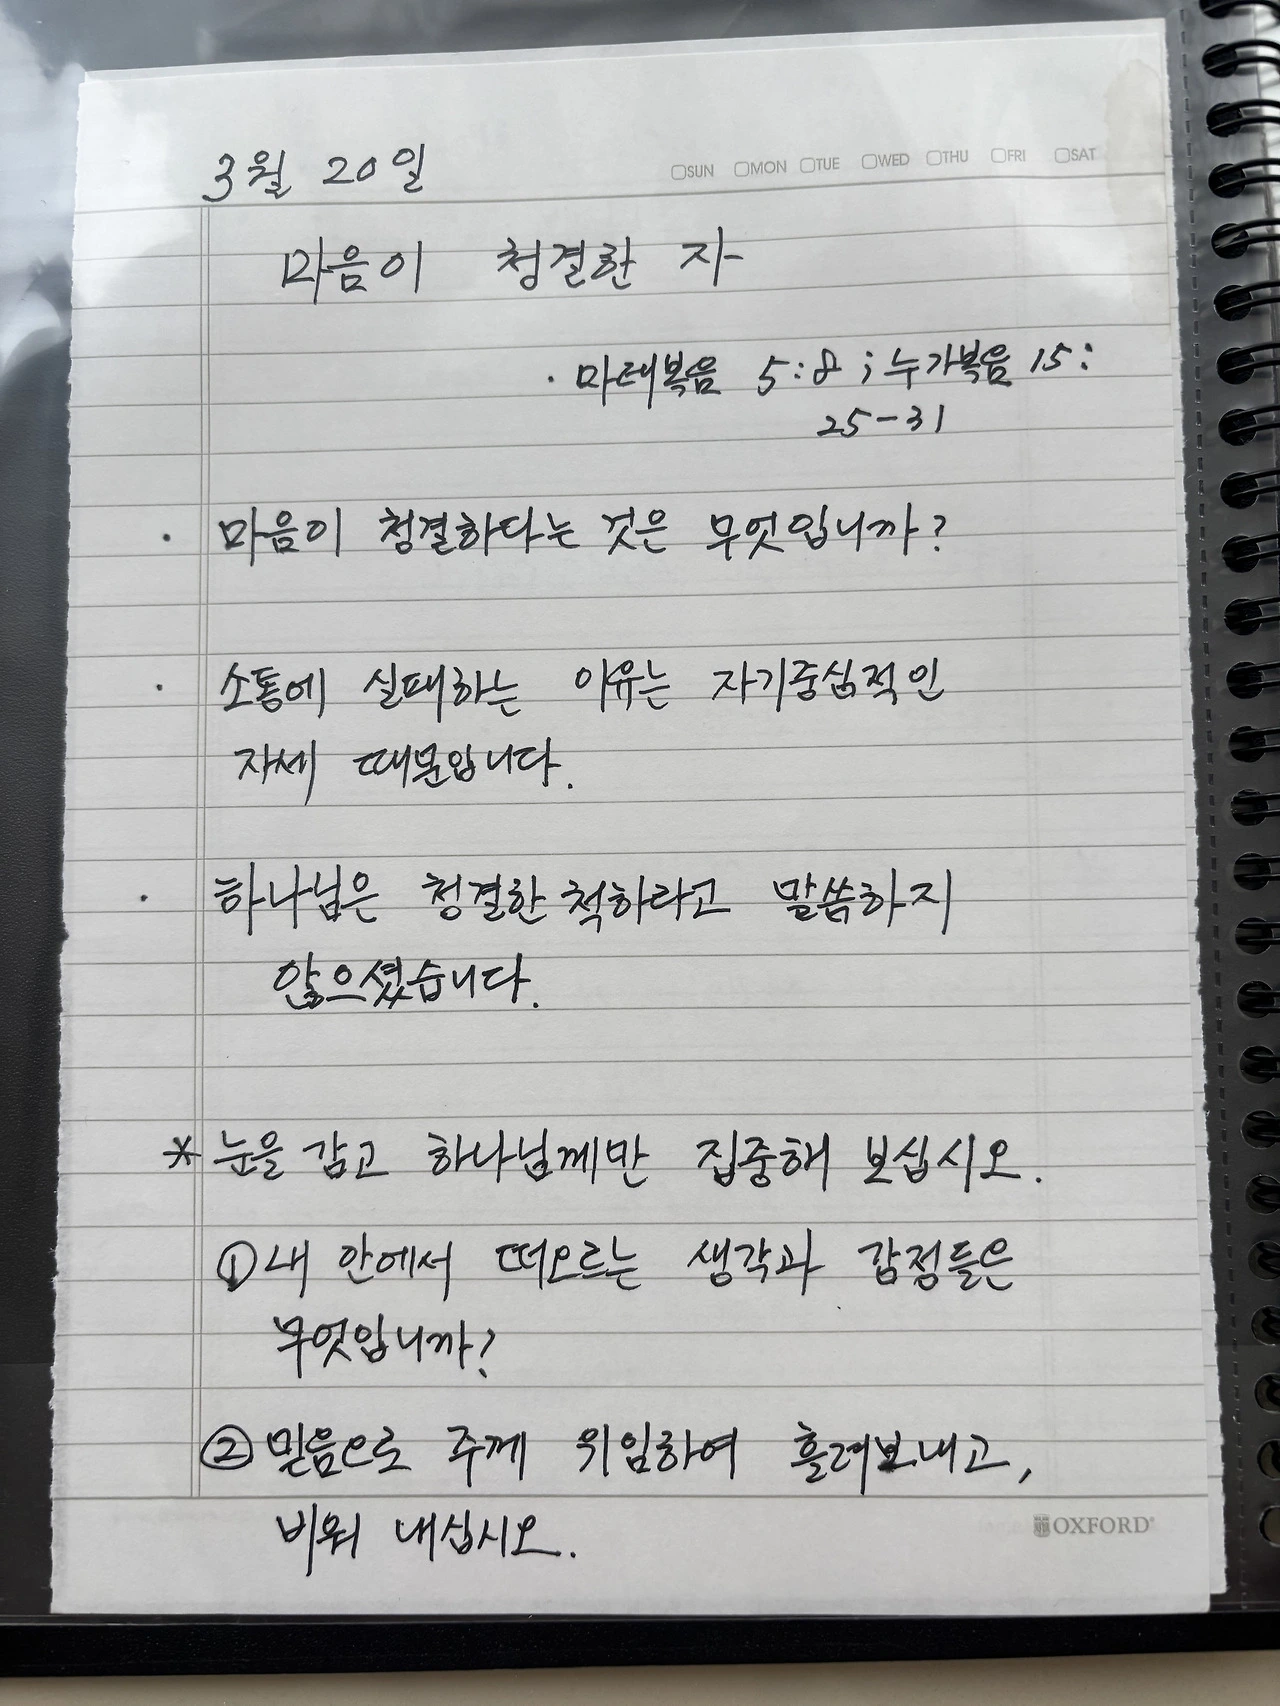 3월 20일
□SUN □MON □TUE □WED □THU □FRI □SAT
마음이 청결한 자
· 마태복음 5:8 ; 누가복음 15:
25-31
· 마음이 청결하다는 것은 무엇입니까?
· 소통에 실패하는 이유는 자기중심적인
자세 때문입니다.
· 하나님은 청결한 척하라고 말씀하지
않으셨습니다.
* 눈을 감고 하나님께만 집중해 보십시오.
① 내 안에서 떠오르는 생각과 감정들은
무엇입니까?
② 믿음으로 주께 위임하여 흘려보내고,
비워 내십시오.
OXFORD